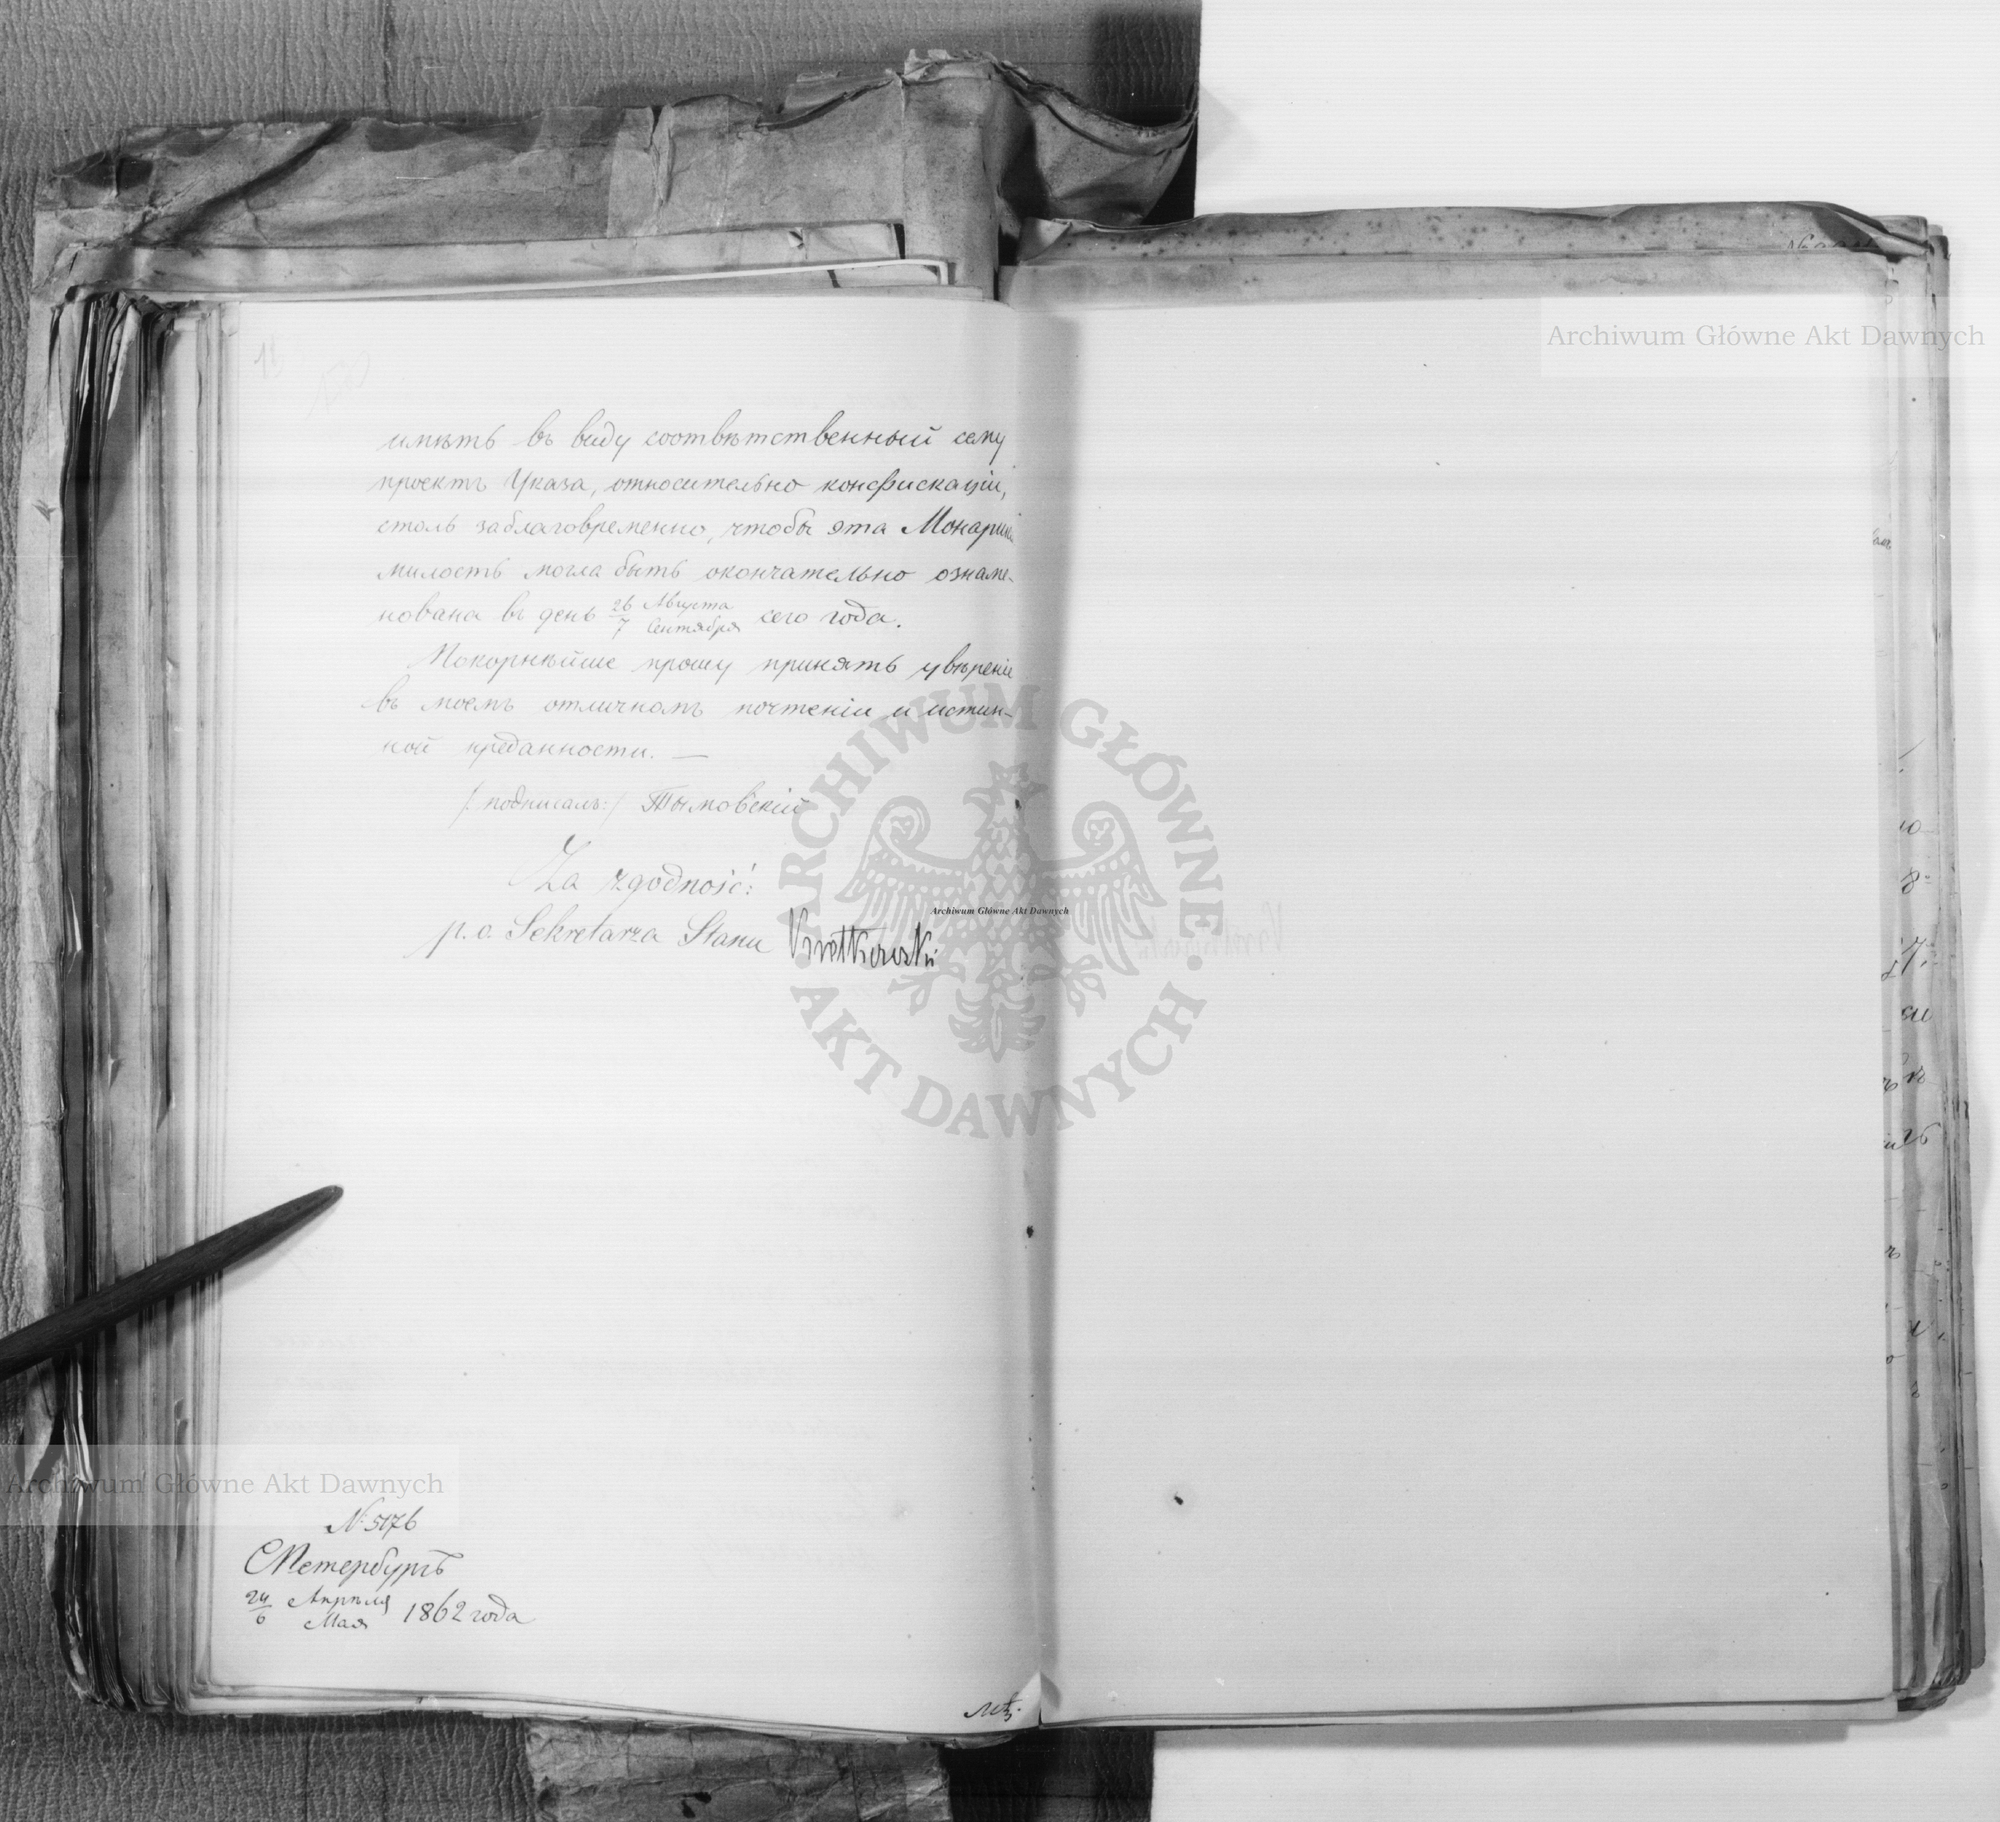 имѣть въ виду соотвѣтственный сему
проектъ Указа, относительно конфискаціи,
столь заблаговременно, чтобы эта Монаршая
милость могла быть окончательно ознаме-
нована въ день 26 Августа / 7 Сентября сего года.
Покорнѣйше прошу принять увѣреніе
въ моемъ отличномъ почтеніи и истин-
ной преданности. —
/: подписалъ: / Тымовскій
Za zgodność:
p. o. Sekretarza Stanu
№ 5176
СПетербургъ
24 Апрѣля / 6 Мая 1862 года
Archiwum Główne Akt Dawnych
ARCHIWUM GŁÓWNE AKT DAWNYCH
Archiwum Główne Akt Dawnych
Archiwum Główne Akt Dawnych